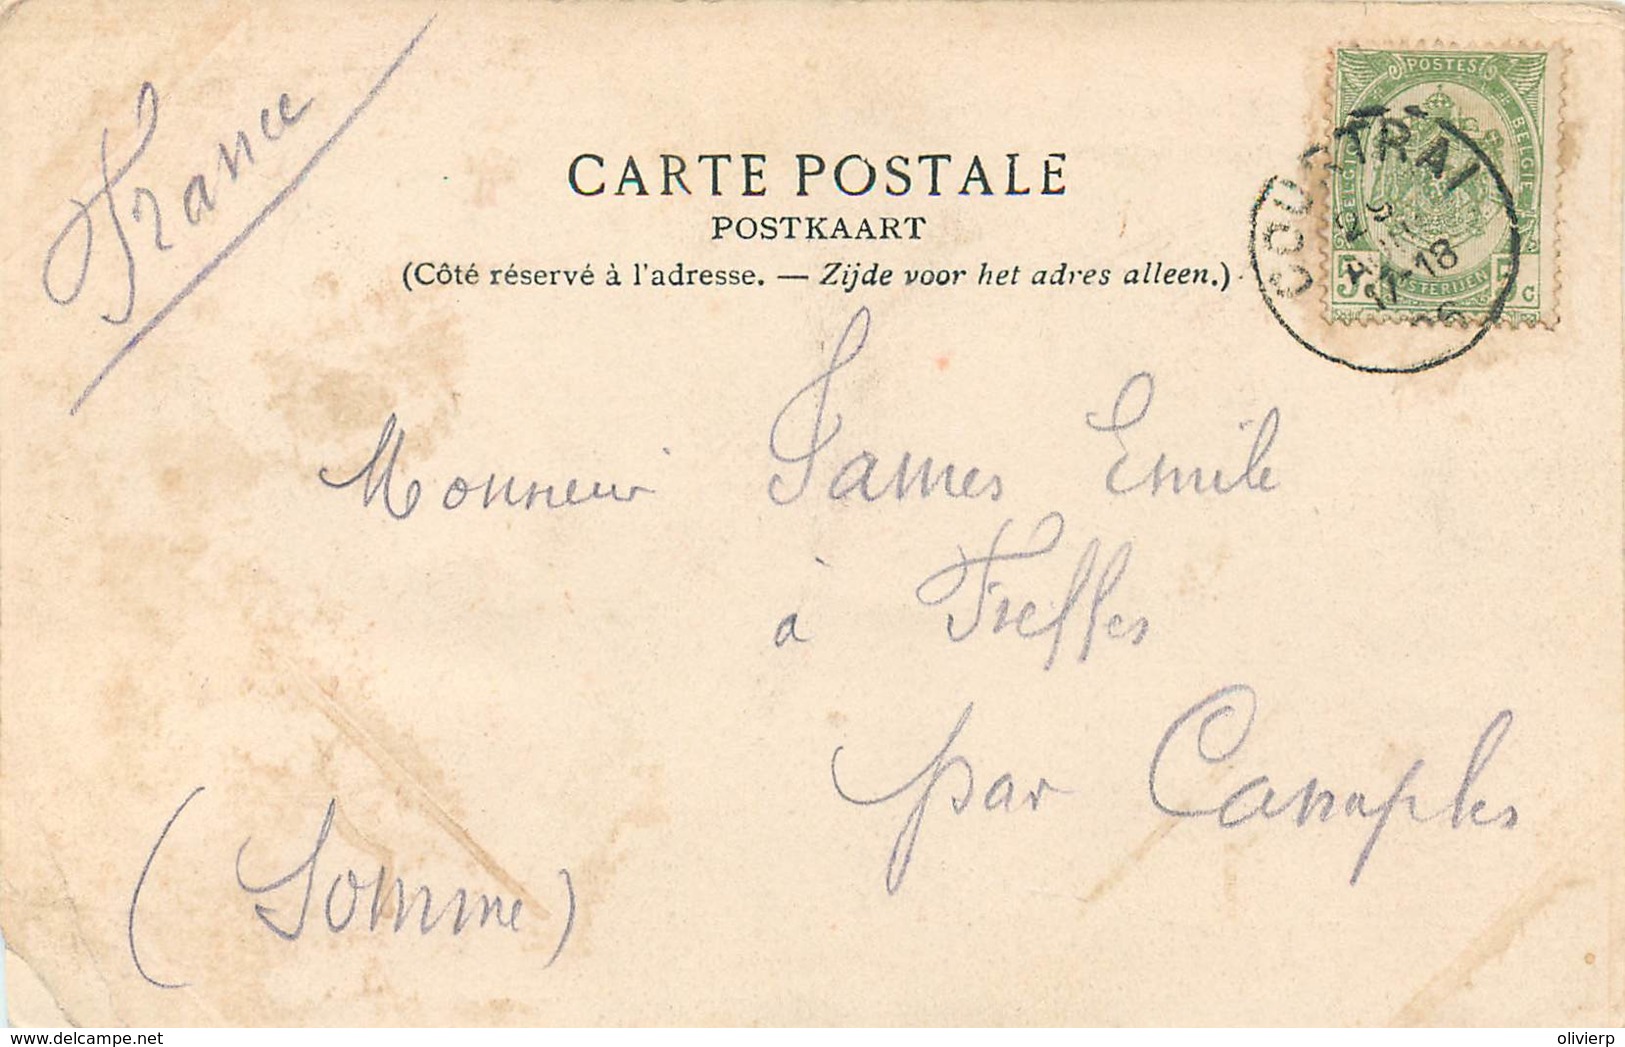 France
CARTE POSTALE
POSTKAART
(Côté réservé à l'adresse. — Zijde voor het adres alleen.)
POSTES
BELGIQUE
BELGIE
POSTERIJEN
5 5 c
COURTRAI
17-18
06
Monsieur James Emile
à Fieffes
par Canaples
(Somme)
delcampe.net
olivierp